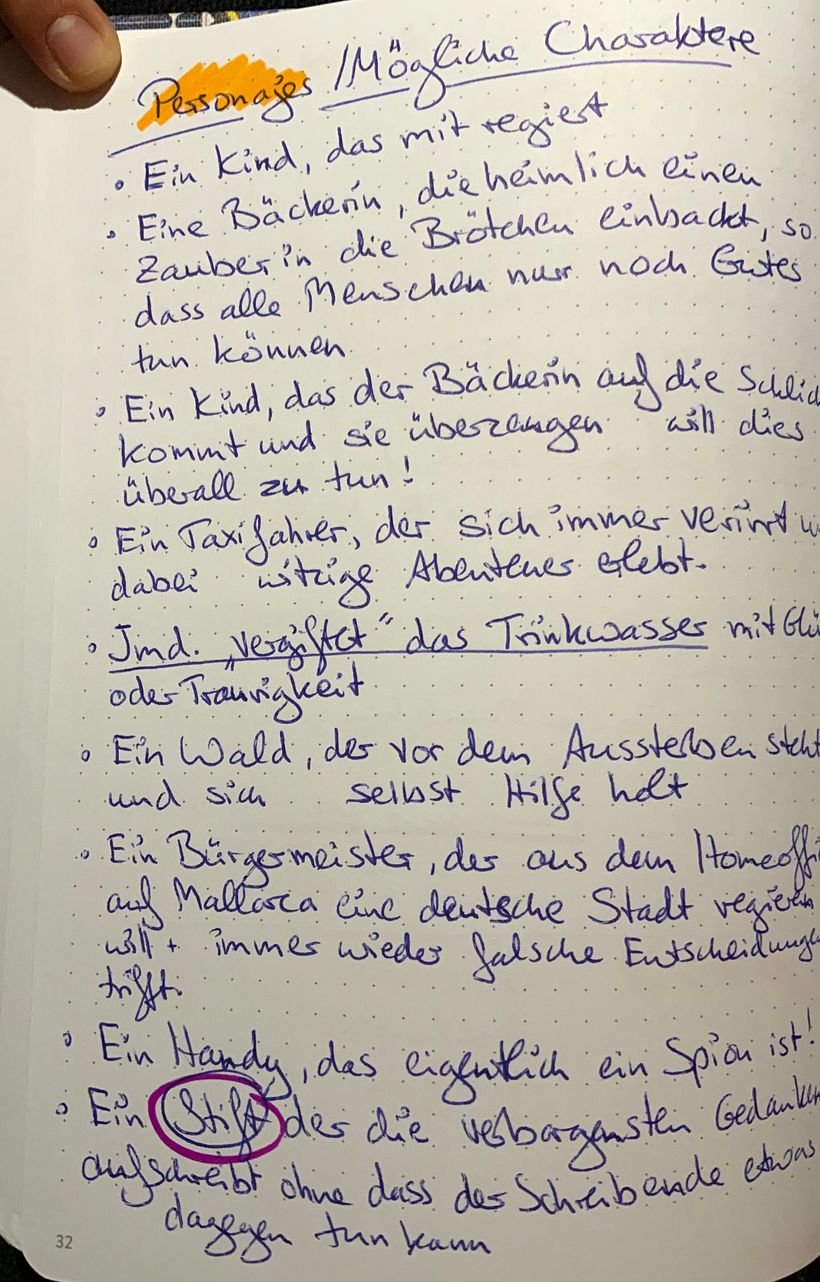 Personajes / Mögliche Charaktere
• Ein Kind, das mit regiert
• Eine Bäckerin, die heimlich einen
Zauber in die Brötchen einbackt, so
dass alle Menschen nur noch Gutes
tun können
• Ein Kind, das der Bäckerin auf die Schlic
kommt und sie überzeugen will dies
überall zu tun!
• Ein Taxifahrer, der sich immer verirrt u
dabei witzige Abenteuer erlebt.
• Jmd. „vergiftet“ das Trinkwasser mit Glü
oder Traurigkeit
• Ein Wald, der vor dem Aussterben steht
und sich selbst Hilfe holt
• Ein Bürgermeister, der aus dem Homeoffi
auf Mallorca eine deutsche Stadt regieren
will + immer wieder falsche Entscheidunge
trifft.
• Ein Handy, das eigentlich ein Spion ist!
• Ein Stift der die verborgensten Gedanken
aufschreibt ohne dass der Schreibende etwas
dagegen tun kann
32